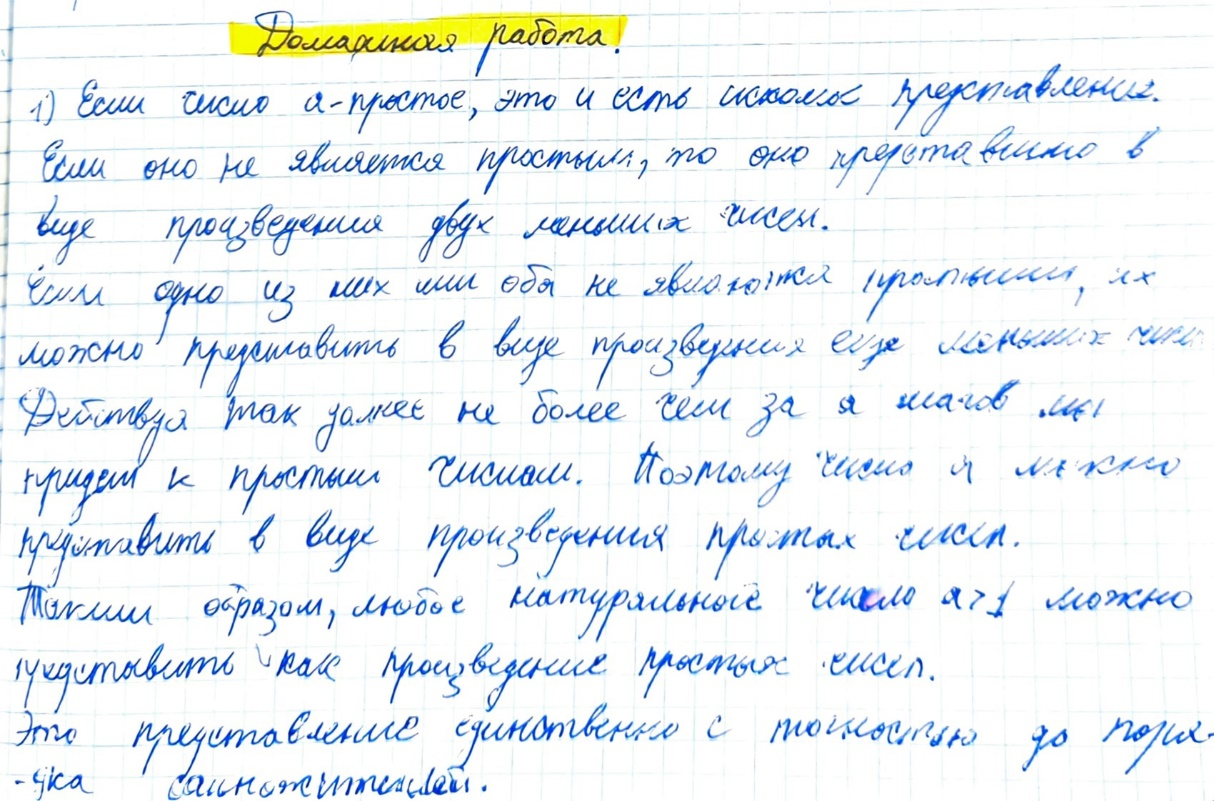 Домашная работа.
1) Если число a-простое, это и есть искомое представление.
Если оно не является простым, то оно представимо в
виде произведения двух меньших чисел.
Если одно из них или оба не являются простыми, их
можно представить в виде произведения еще меньших чисел
Действуя так далее не более чем за a шагов мы
придем к простым числам. Поэтому число a можно
представить в виде произведения простых чисел.
Таким образом, любое натуральное число a>1 можно
представить как произведение простых чисел.
Это представление единственно с точностью до поря-
-дка сомножителей.